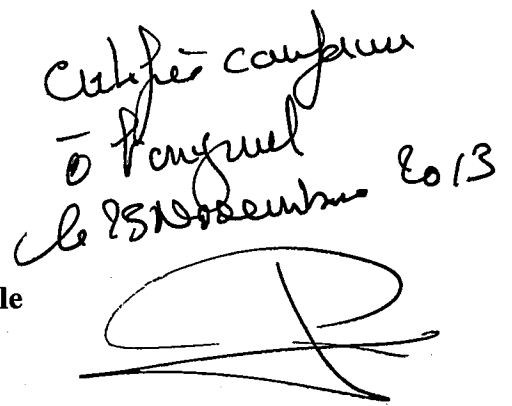 Certifiée conforme
à l'original
le 25 Novembre 2013
le